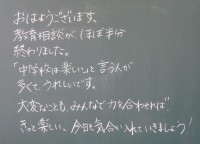 おはようございます。
教育相談が、ほぼ半分
終わりました。
「中学校は楽しい」と言う人が
多くて、うれしいです。
大変なことも、みんなで力を合わせれば
きっと楽しい、今日も気合い入れていきましょう!